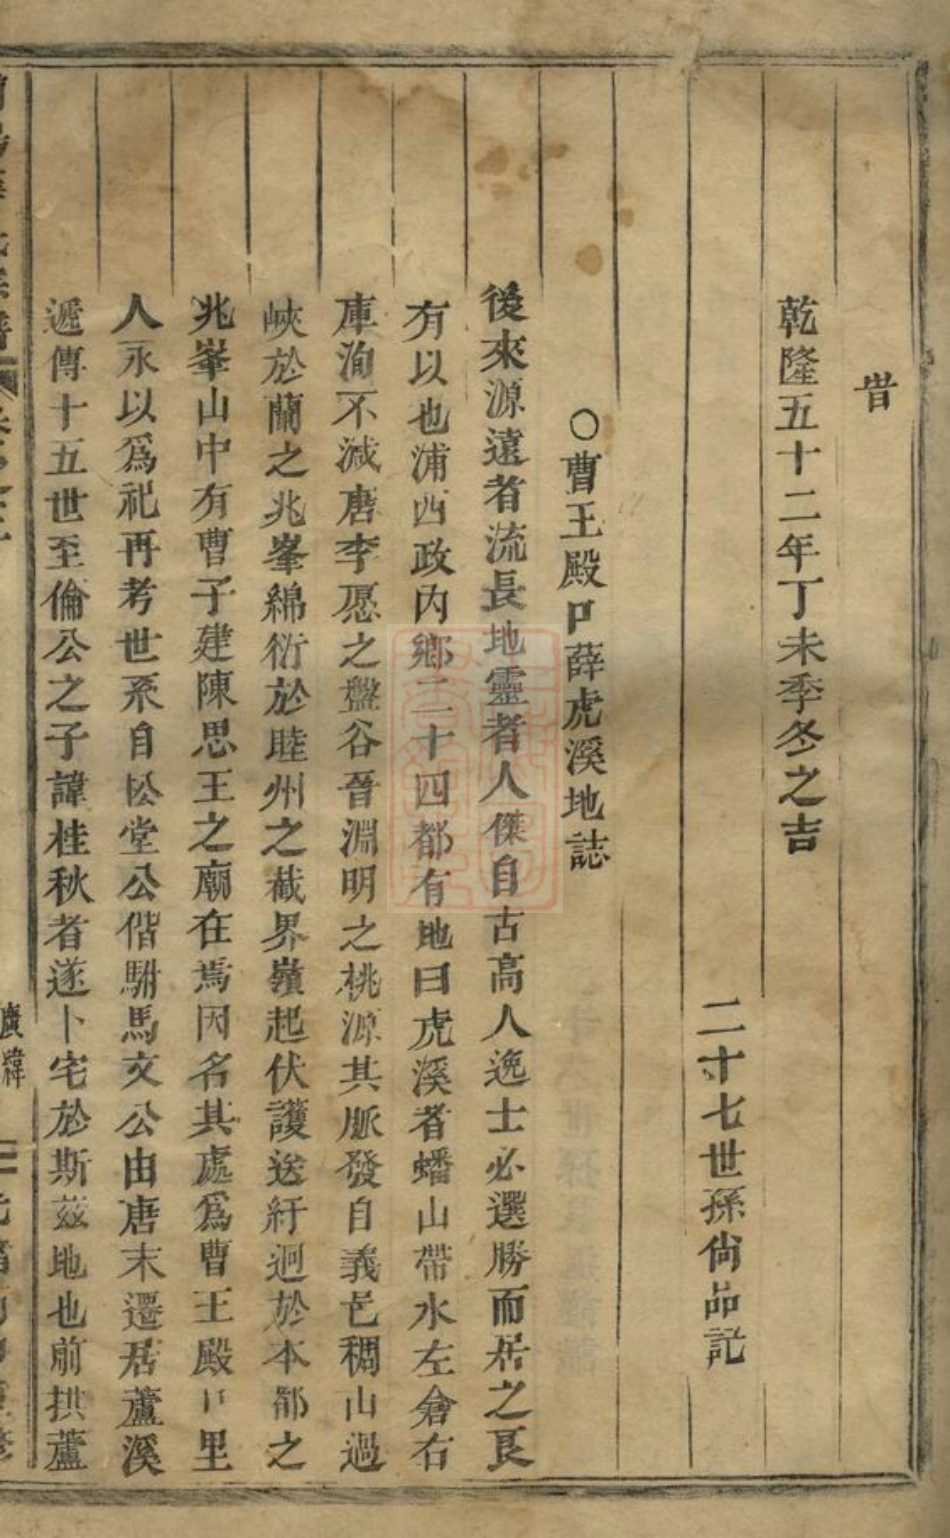 昔
乾隆五十二年丁未季冬之吉
二十七世孫尙品記
○曹王殿口薛虎溪地誌
後來源遠者流長地靈者人傑自古高人逸士必選勝而居之良
有以也浦西政內鄉二十四都有地曰虎溪者蟠山帶水左倉右
庫洵不減唐李愿之盤谷晉淵明之桃源其脈發自義邑稠山過
峽於蘭之兆峯綿衍於睦州之截界嶺起伏護送紆迴於本都之
兆峯山中有曹子建陳思王之廟在焉因名其處爲曹王殿口里
人永以爲祀再考世系自松堂公偕駙馬交公由唐末遷居蘆溪
遞傳十五世至倫公之子諱桂秋者遂卜宅於斯茲地也前拱蘆